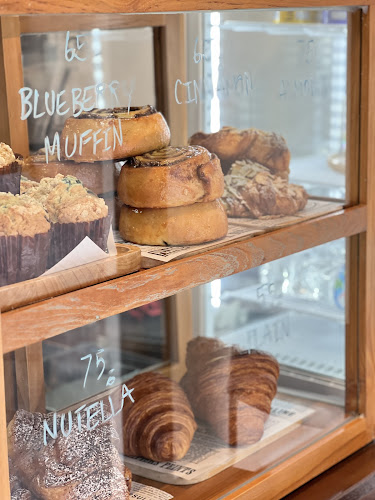 6๐
BLUEBERRY
MUFFIN
65
CINNAMON
75
ALMOND
55
PLAIN
75.-
NUTELLA